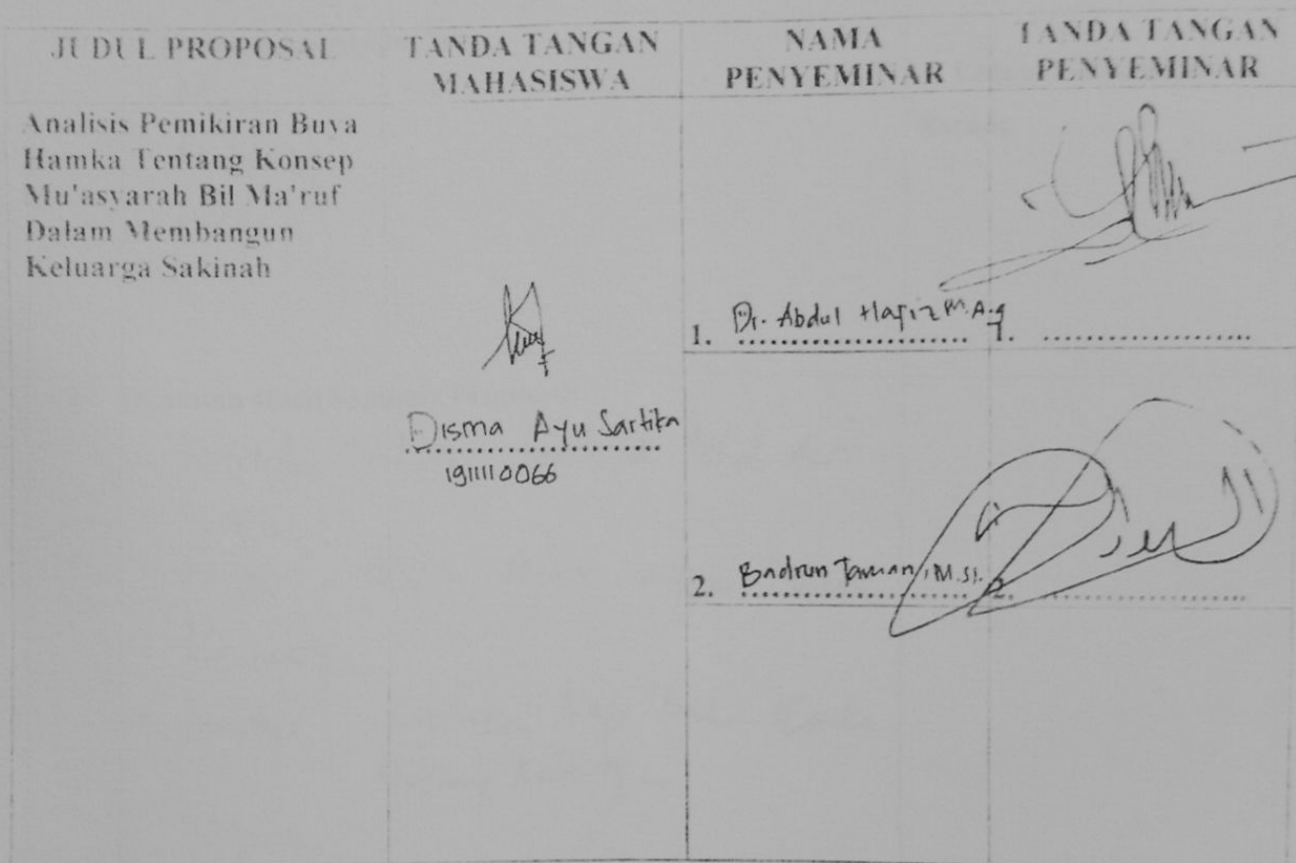 JUDUL PROPOSAL
TANDA TANGAN
MAHASISWA
NAMA
PENYEMINAR
TANDA TANGAN
PENYEMINAR
Analisis Pemikiran Buya
Hamka Tentang Konsep
Mu'asyarah Bil Ma'ruf
Dalam Membangun
Keluarga Sakinah
Disma Ayu Sartika
1911110066
1. Dr. Abdul Hafiz M.Ag
1.
2. Badrun Taman, M.Si.
2.